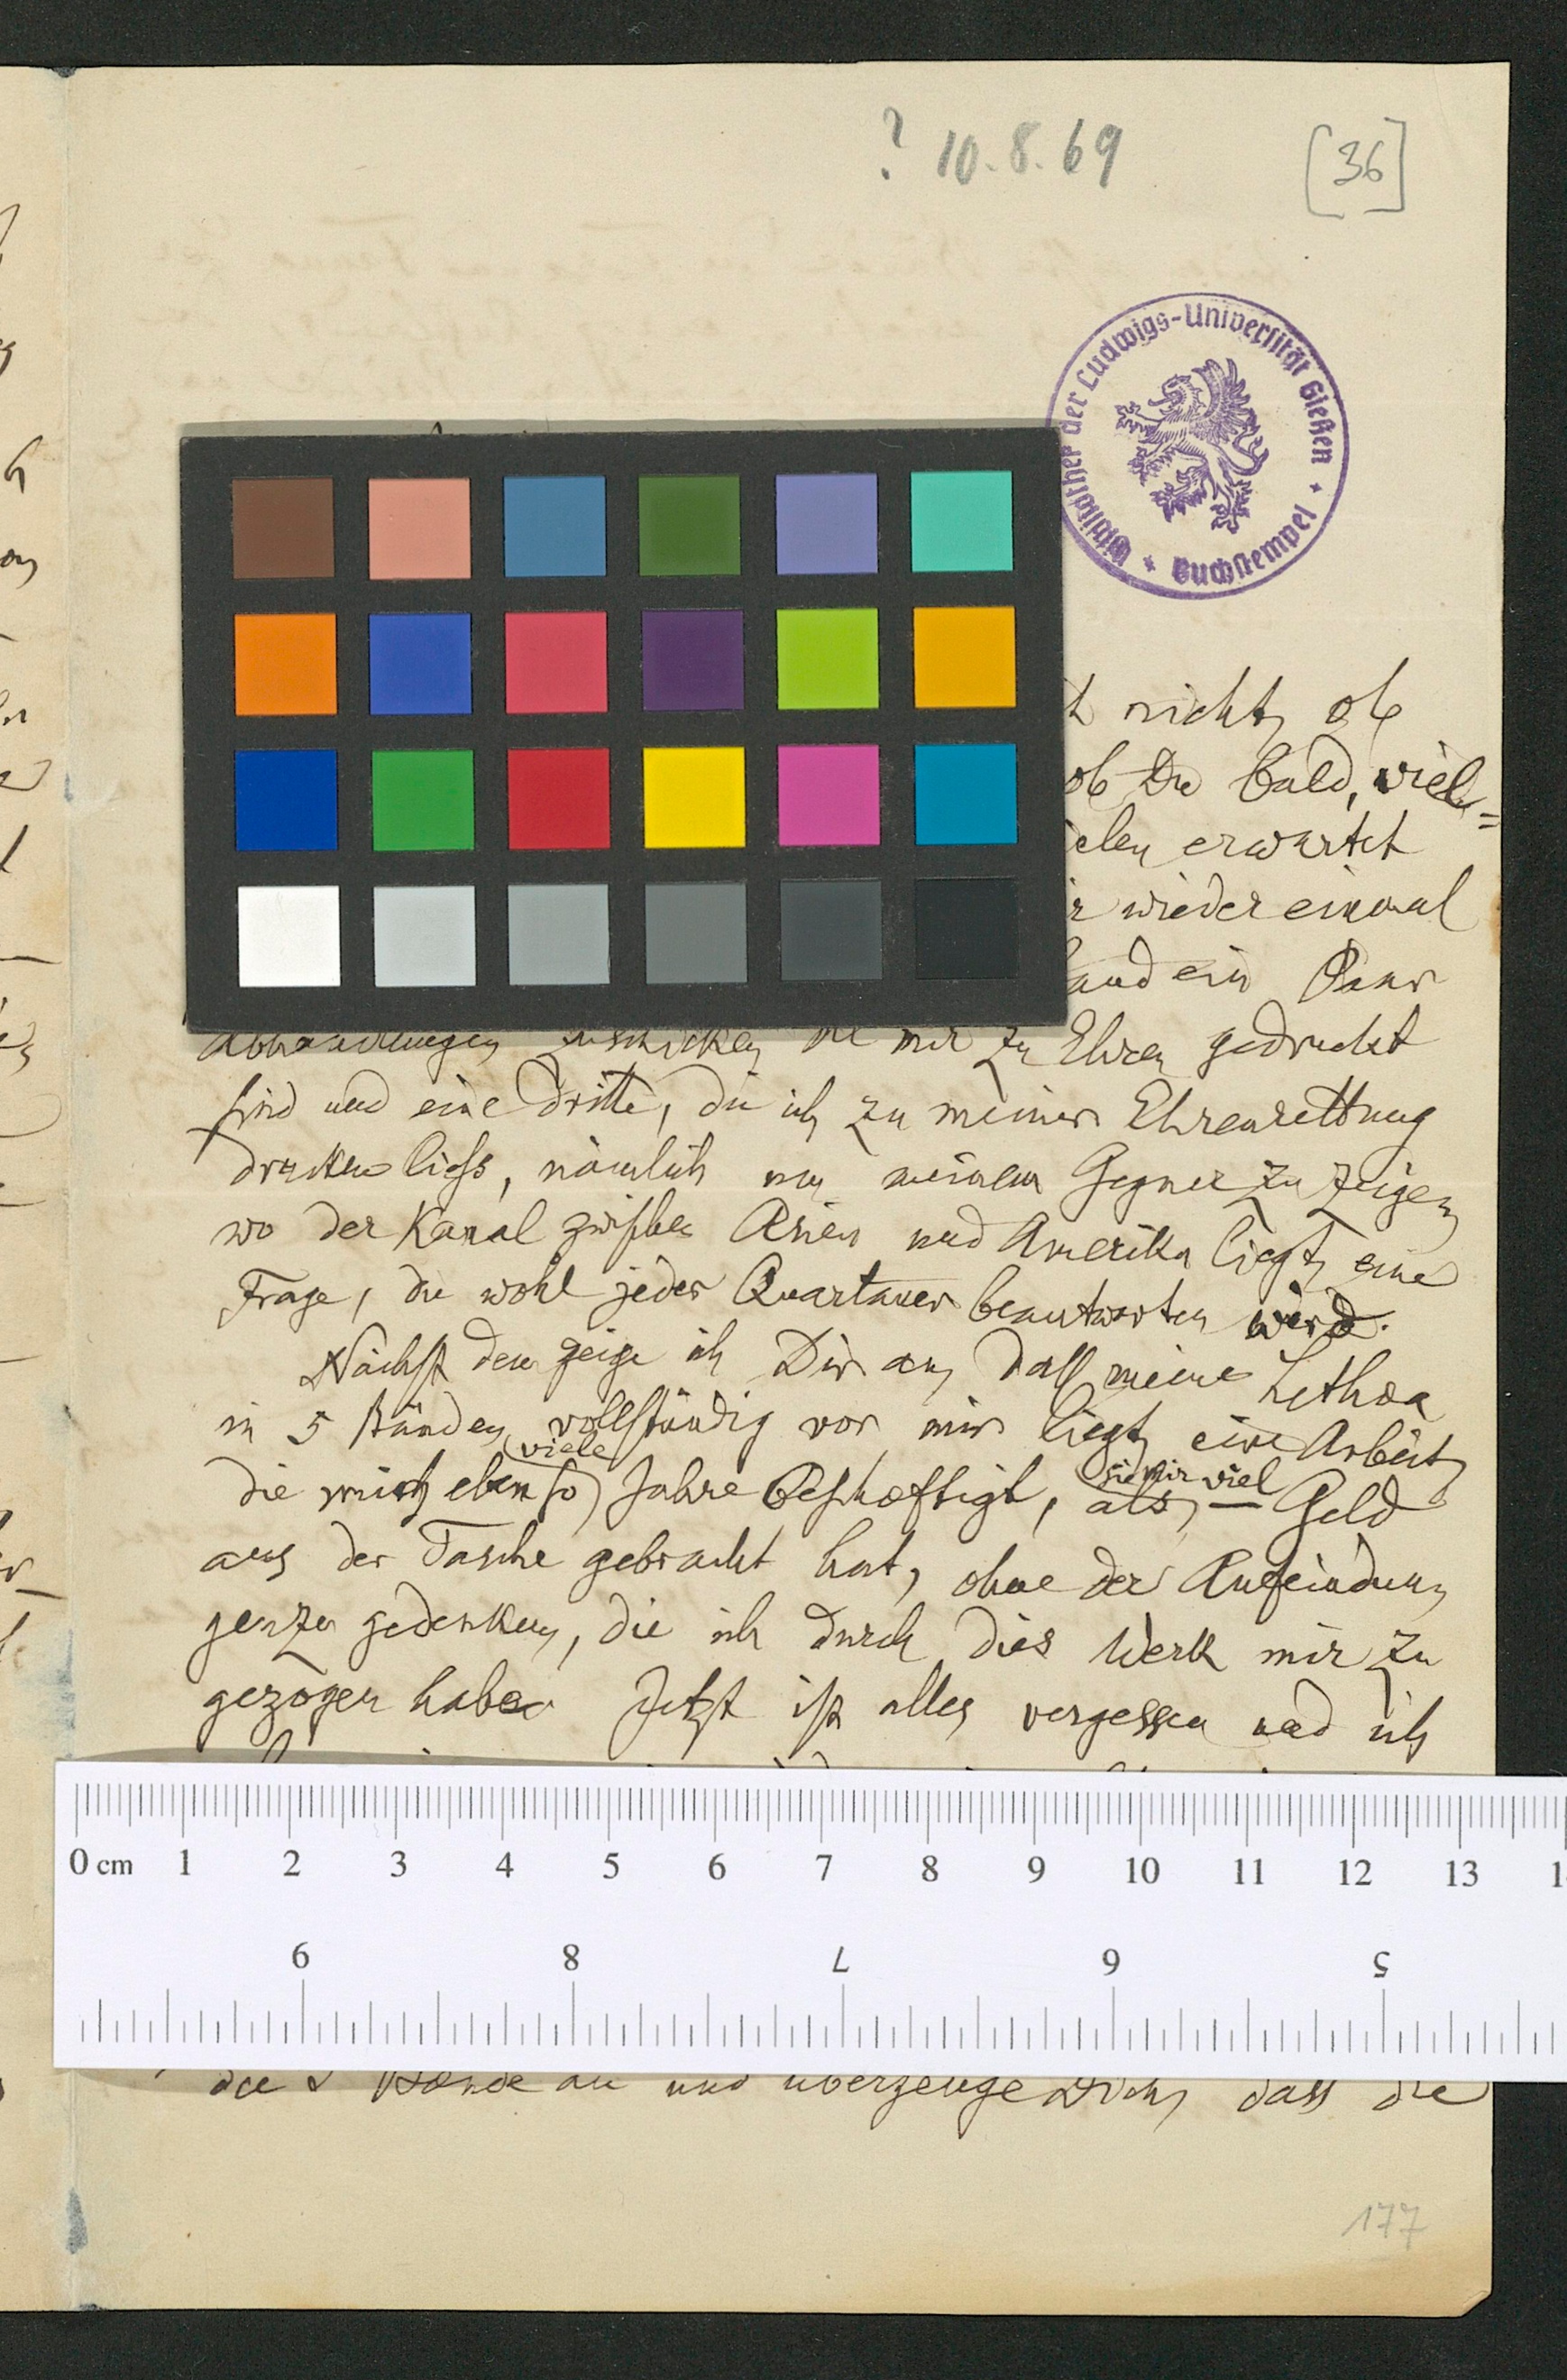 ? 10.8.69
[36]
der Ludwigs-Universität Gießen + Buchstempel +
nicht, ob
ob Du bald, viel=
erwartet
wieder einmal
ein Paar
Abhandlungen zu schicken die mir zu Ehren gedruckt
sind und eine dritte, die ich zu meiner Ehrenrettung
drucken liess, nämlich um meinem Gegner zu zeigen,
wo der Kanal zwischen Asien und Amerika liegt, eine
Frage, die wohl jeder Quartaner beantworten wird.
Nächst dem zeige ich Dir an, daß meine Lethæa
in 5 Bänden, vollständig vor mir liegt, eine Arbeit,
die mich eben so viele Jahre beschæftigt, als sie mir viel Geld
aus der Tasche gebracht hat, ohne der Anfeindun
gen zu gedenken, die ich durch dies Werk mir zu
gezogen habe. Jetzt ist alles vergessen und ich
0 cm 1 2 3 4 5 6 7 8 9 10 11 12 13
9 8 7 6 5
Bænde an und überzeuge Dich, dass die
177